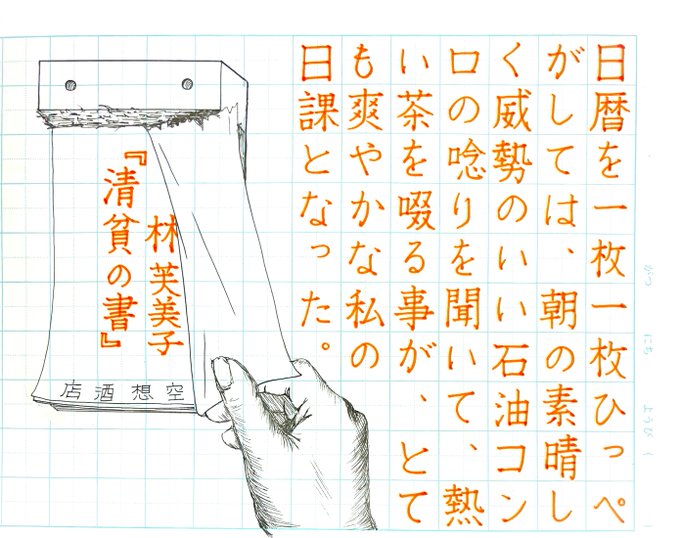 日暦を一枚一枚ひっぺ
がしては、朝の素晴し
く威勢のいい石油コン
ロの唸りを聞いて、熱
い茶を啜る事が、とて
も爽やかな私の
日課となった。
林芙美子
『清貧の書』
空想酒店